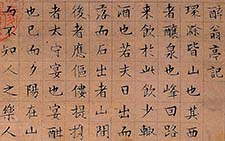 醉翁亭記
環滁皆山也其西
者釀泉也峰回路
來飲於此飲少輒
酒也若夫日出而
落而石出者山間
後者應傴僂提攜
者太守宴也宴酣
也已而夕陽在山
而不知人之樂人